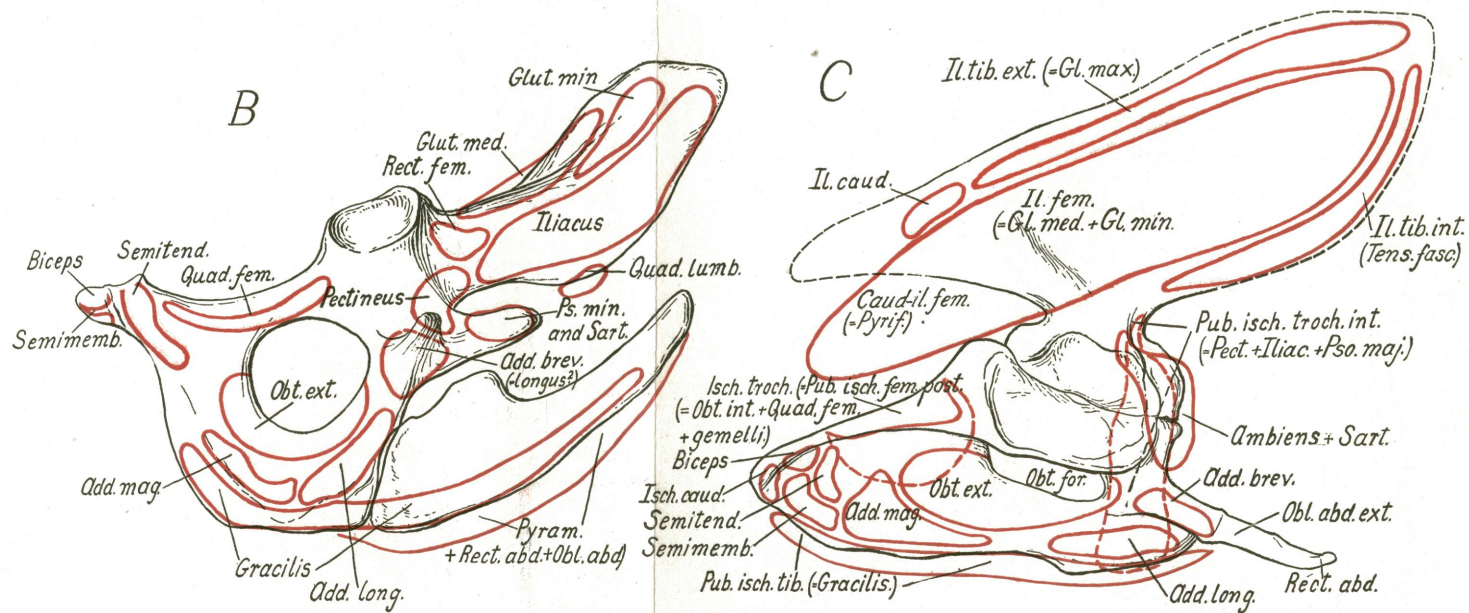 B
Glut. min
Glut. med.
Rect. fem.
Iliacus
Biceps
Semitend.
Quad. fem.
Pectineus
Quad. lumb.
Semimemb.
Ps. min.
and Sart.
Add. brev.
(-longus?)
Obt. ext.
Add. mag.
Pyram.
+Rect. abd.+Obl. abd)
Gracilis
Add. long.
C
Il. tib. ext. (=Gl. max.)
Il. caud.
Il. fem.
(=Gl. med.+Gl. min.
Il. tib. int.
(Tens. fasc.)
Caud-il. fem.
(=Pyrif.)
Pub. isch. troch. int.
(=Pect.+Iliac.+Pso. maj.)
Isch. troch. (=Pub. isch. fem. post.
(=Obt. int.+Quad. fem.
+gemelli.)
Ambiens+Sart.
Biceps
Isch. caud.
Semitend.
Semimemb.
Add. mag.
Obt. ext.
Obt. for.
Add. brev.
Obl. abd. ext.
Pub. isch. tib. (=Gracilis.)
Add. long.
Rect. abd.